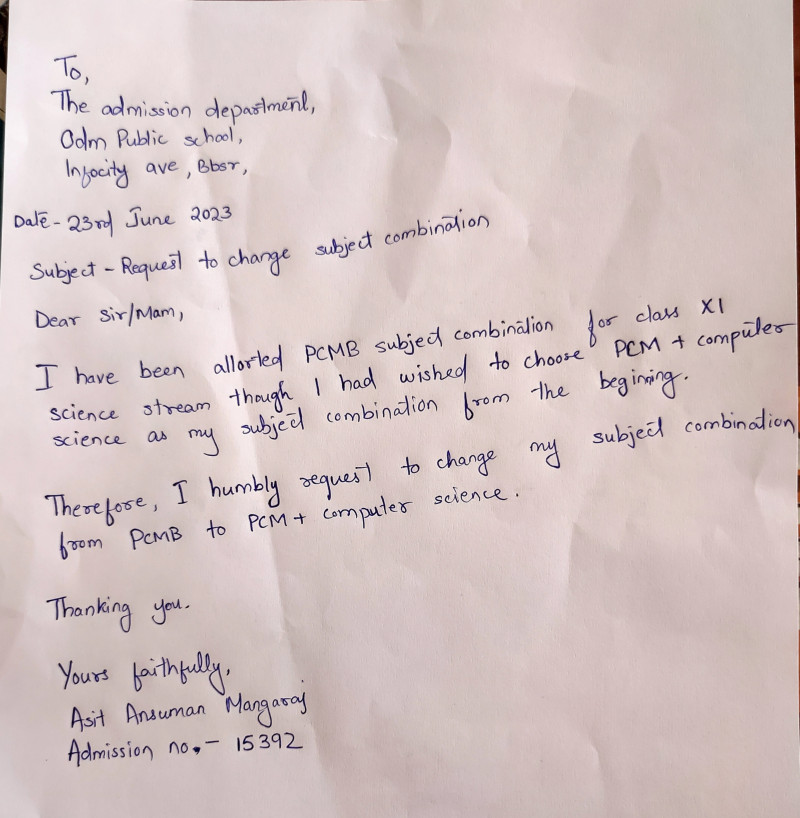 To,
The admission department,
Odm Public school,
Infocity ave, Bbsr,
Date - 23rd June 2023
Subject - Request to change subject combination
Dear Sir/Mam,
I have been allorted PCMB subject combination for class XI
science stream though I had wished to choose PCM + computer
science as my subject combination from the beginning.
Therefore, I humbly request to change my subject combination
from PCMB to PCM + computer science.
Thanking you.
Yours faithfully,
Asit Ansuman Mangaraj
Admission no. - 15392